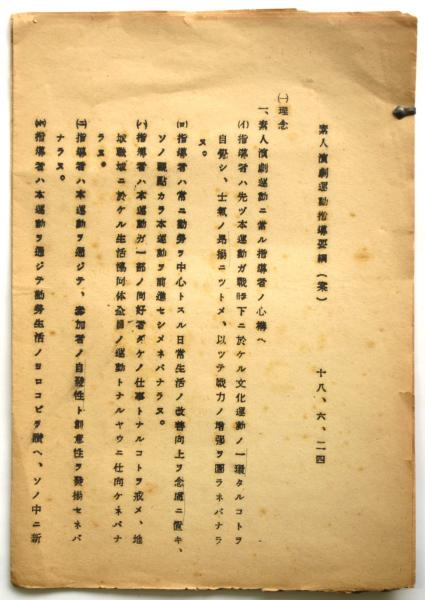 素人演劇運動指導要綱（案）
十八、六、二四
㈠理念
一、素人演劇運動ニ當ル指導者ノ心構ヘ
(イ)指導者ハ先ヅ本運動ガ戰時下ニ於ケル文化運動ノ一環タルコトヲ
自覺シ、士氣ノ昂揚ニツトメ、以ッテ戰力ノ增强ヲ圖ラネバナラ
ヌ。
(ロ)指導者ハ常ニ勤勞ヲ中心トスル日常生活ノ改善向上ヲ念慮ニ置キ、
ソノ觀點カラ本運動ヲ前進セシメネバナラヌ。
(ハ)指導者ハ本運動ガ一部ノ同好者ダケノ仕事トナルコトヲ戒メ、地
域職域ニ於ケル生活協同体全員ノ運動トナルヤウニ仕向ケネバナ
ラヌ。
(ニ)指導者ハ本運動ヲ通ジテ、參加者ノ自發性ト創意性ヲ發揚セネバ
ナラヌ。
(ホ)指導者ハ本運動ヲ通ジテ勤勞生活ノヨロコビヲ讚ヘ、ソノ中ニ新